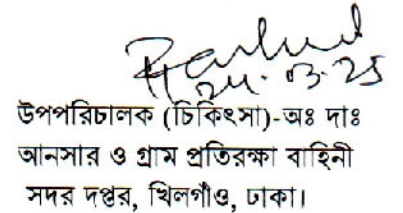 24.03.25
উপপরিচালক (চিকিৎসা)-অঃ দাঃ
আনসার ও গ্রাম প্রতিরক্ষা বাহিনী
সদর দপ্তর, খিলগাঁও, ঢাকা।